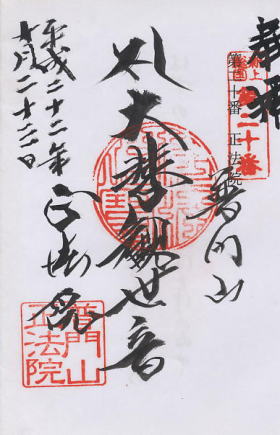 奉拝
第二十番
第二十番 正法院
普門山
大悲観世音
正法院
平成二十二年
十月二十三日
普門山
正法院